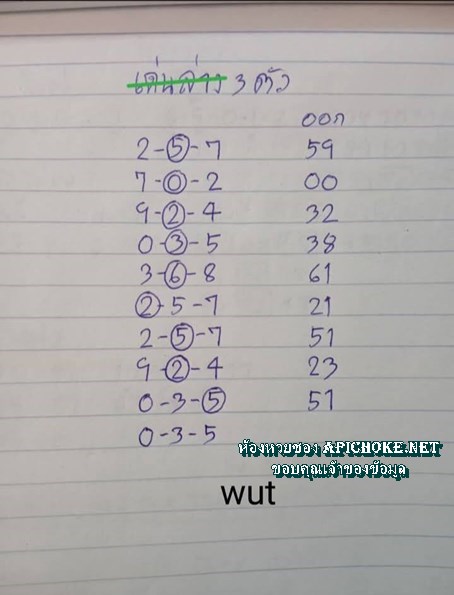 เด่นล่าง 3 ตัว
ออก
2-5-7 59
7-0-2 00
9-2-4 32
0-3-5 38
3-6-8 61
2-5-7 21
2-5-7 51
9-2-4 23
0-3-5 51
0-3-5
ห้องหวยซอง APICHOKE.NET
ขอบคุณเจ้าของข้อมูล
wut